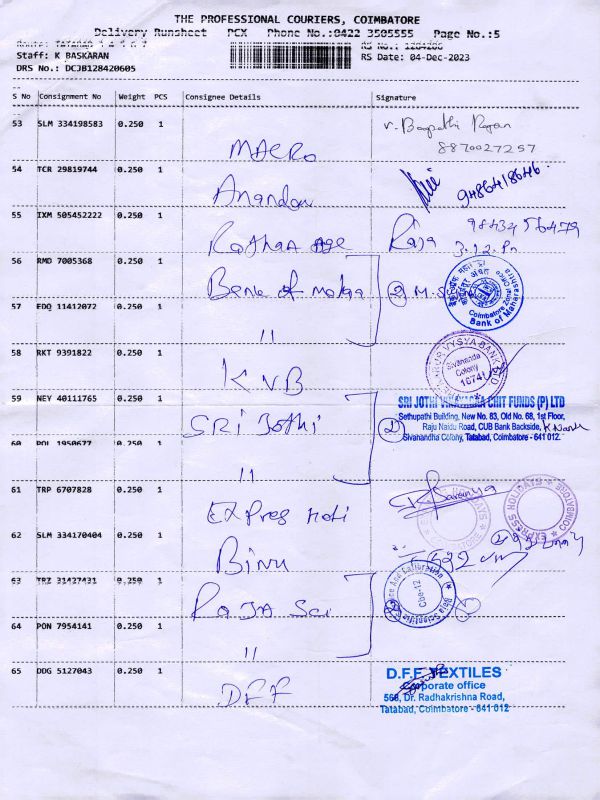 THE PROFESSIONAL COURIERS, COIMBATORE
Delivery Runsheet PCX Phone No.:0422 3505555 Page No.:5
Staff: K BASKARAN
DRS No.: DCJB128420605
RS Date: 04-Dec-2023
S No Consignment No Weight PCS Consignee Details Signature
53 SLM 334198583 0.250 1
MACRO
8870027257
54 TCR 29819744 0.250 1
Anandan
9486418646
55 IXM 505452222 0.250 1
Raja
56 RMD 7005368 0.250 1
Bank of maha
Coimbatore Zonal Office
Bank of Maharashtra
57 EDQ 11412072 0.250 1
11
58 RKT 9391822 0.250 1
KVB
VYSYA BANK LTD
Sivananda
Colony
59 NEY 40111765 0.250 1
SRi Jothi
SRI JOTHI VINAYAGA CHIT FUNDS (P) LTD
Sethupathi Building, New No. 83, Old No. 68, 1st Floor,
Raju Naidu Road, CUB Bank Backside,
Sivahandha Colony, Tatabad, Coimbatore - 641 012.
60 POL 1950677 0.250 1
11
61 TRP 6707828 0.250 1
Expres Holi
Saranya
EXPRESS HOLIDAYS
COIMBATORE
62 SLM 334170404 0.250 1
Binu
63 TRZ 31427431 0.250 1
RAJA Sci
Raja Scientific
And Calibration
Cbe-12
64 PON 7954141 0.250 1
11
65 DDG 5127043 0.250 1
DFF
D.F.F. TEXTILES
Corporate office
Dr. Radhakrishna Road,
Tatabad, Coimbatore - 641 012